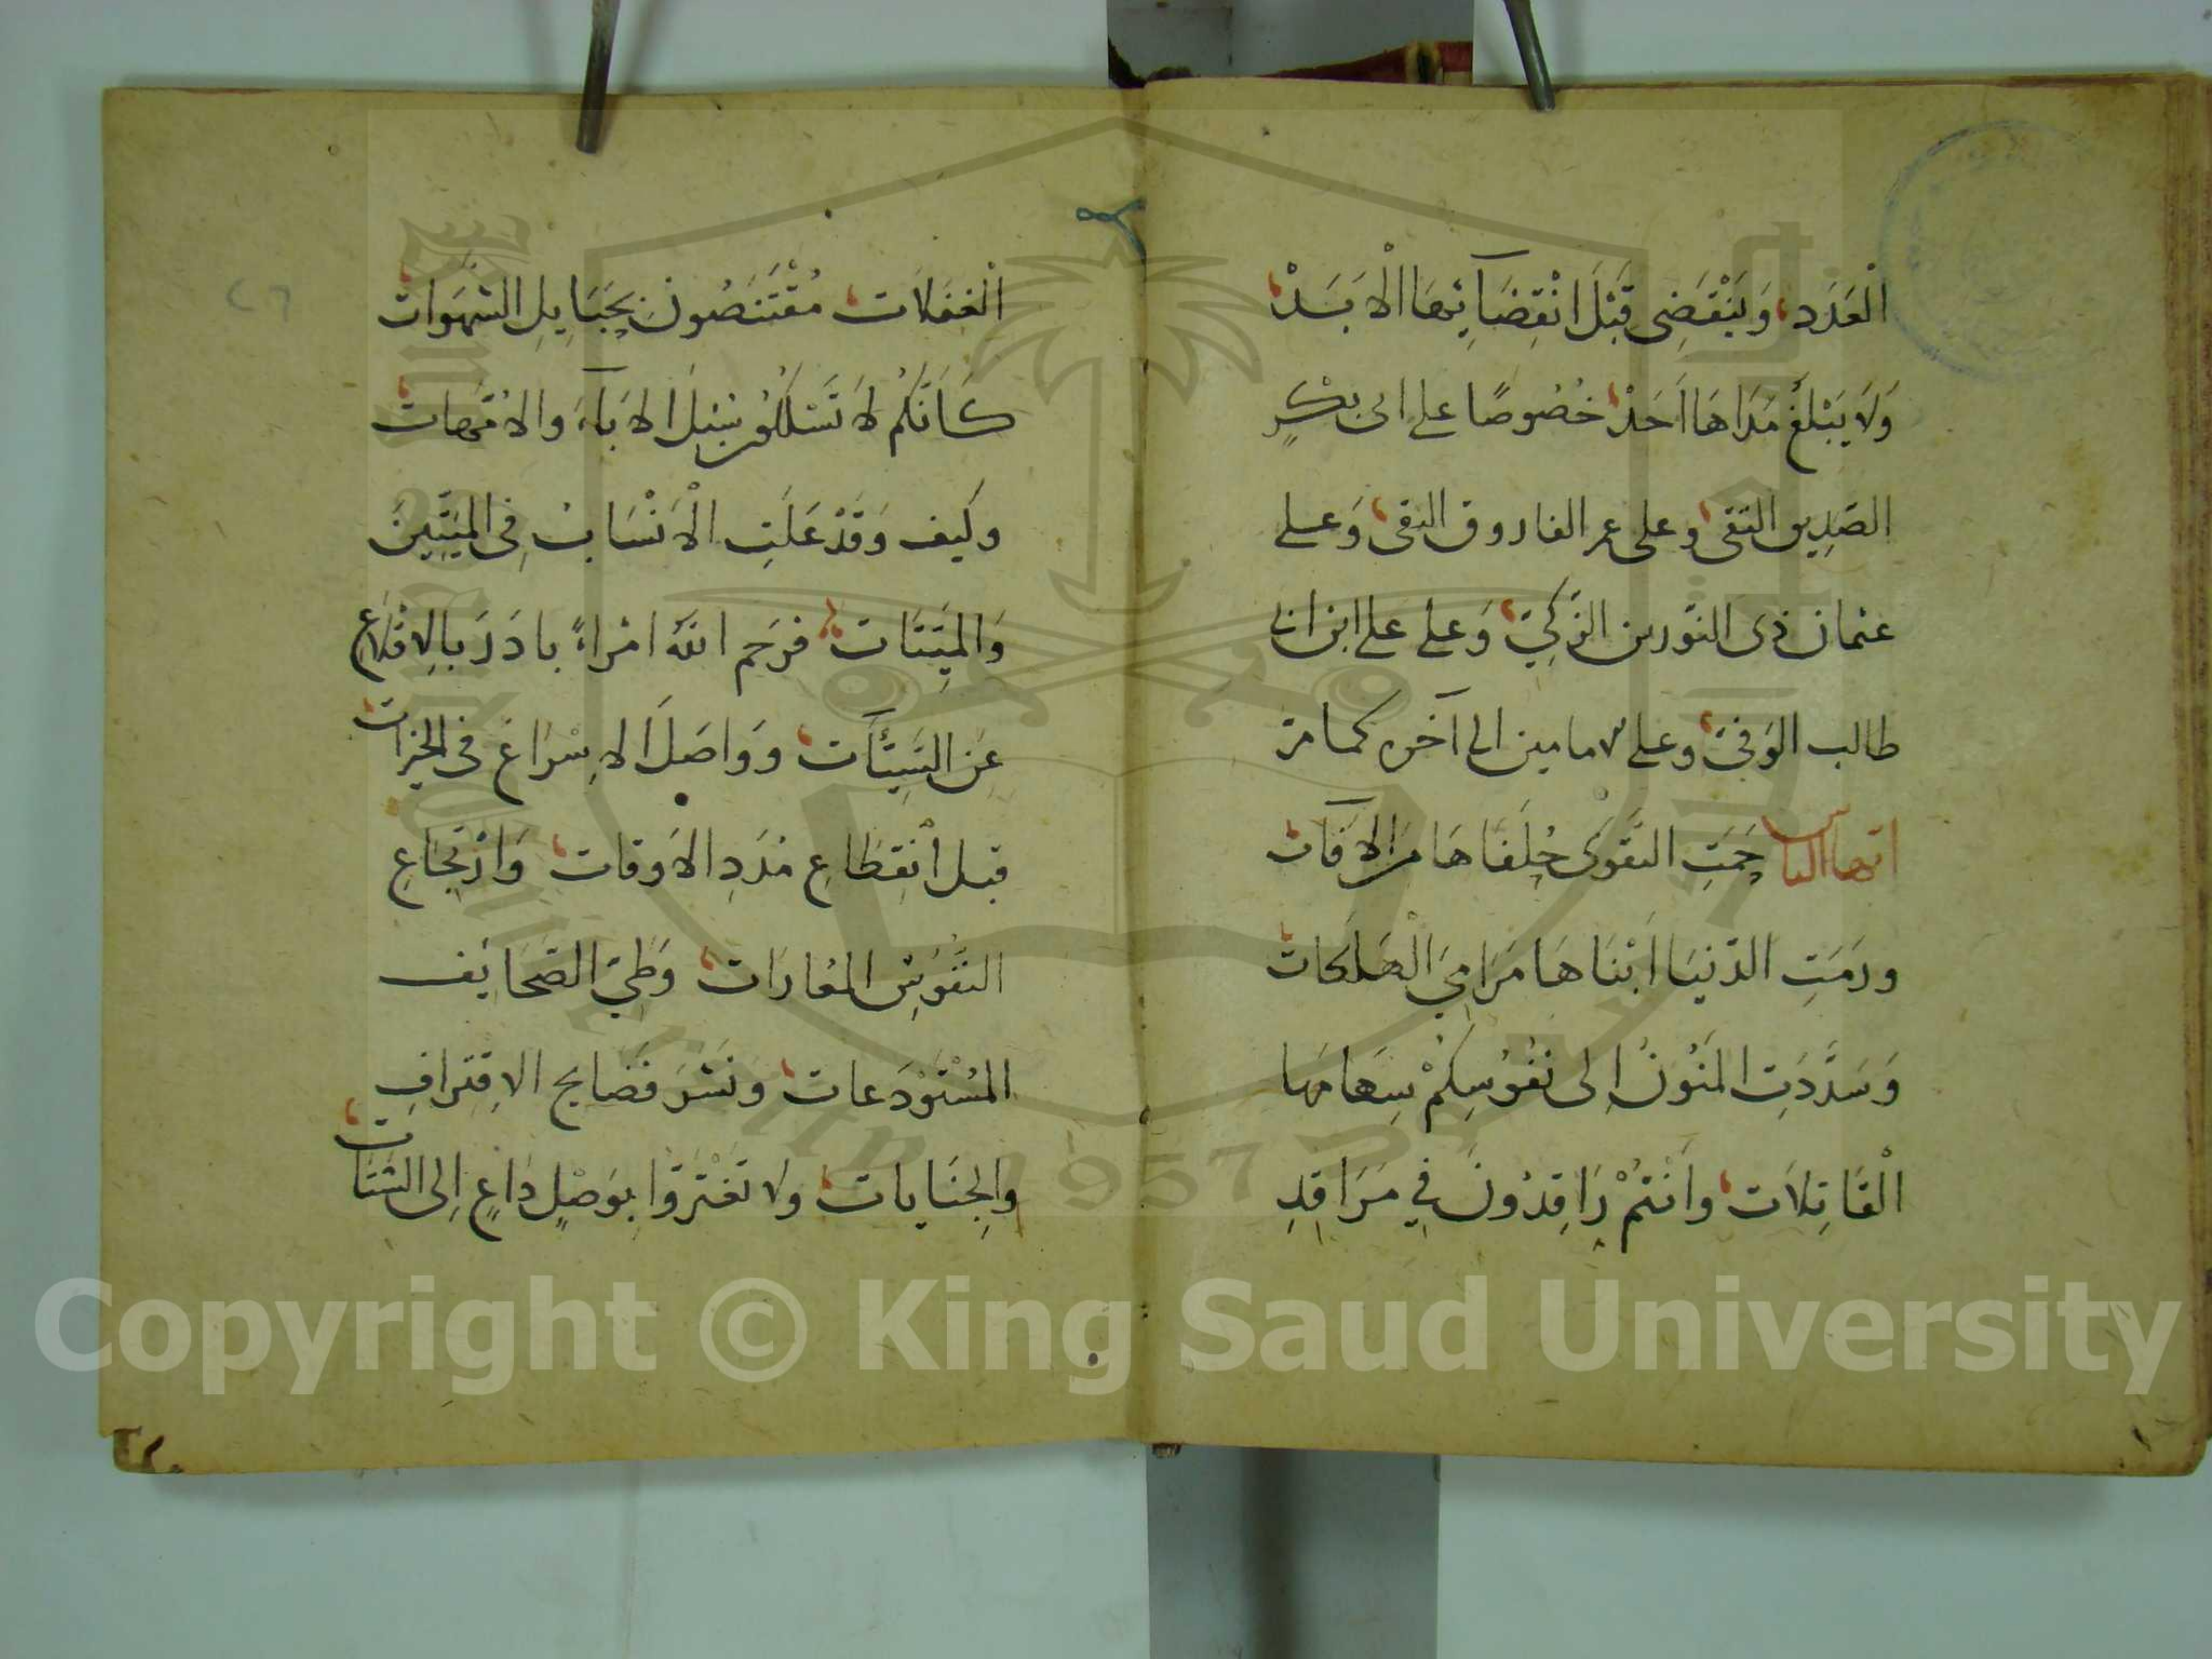 الْعَدَد، وَيَنْقَضِى قَبْلَ انْقِضَآئِهَا الْاَبَدْ،
وَلَا يَبْلُغُ مَدَاهَا اَحَدْ، خُصُوصًا على ابى بكْرٍ
الصّدِيق التقى، وعلى عمر الفاروق النقى، وَعلى
عثمان ذى النّورين الزّكِيّ، وَعلى على ابن ابى
طالب الوَفىّ، وعلى الامامين الى آخره كما مرّ
ايّها الناس حَمَتِ التَّقْوَى حُلَفَاهَا مِنَ الْاٰفَات،
ورَمَتِ الدّنيَا اَبْنَاهَا مَرَامِيَ الْهَلَكَات،
وَسَدَّدَتِ المَنُونُ اِلى نفُوُسِكمْ سِهَامَهَا
الْقَاتِلَات، وانْتُمْ رَاقِدُونَ فِي مَرَاقِدِ
الْغفَلَات، مُقْتَنَصُونَ بِحَبَايِلِ الشّهَوَات،
كَاَنَّكُمْ لَا تَسْلكُونَ سَبيْلَ الاٰبَآءِ والاُمّهات،
وكَيف وَقَدْ عَلَتِ الْاَنْسَابُ فِى المَيّتِينَ
وَالميّتَات، فرَحم اللهُ امْراءً بادَرَ بالِاقْلَاعِ
عَن السَيّئآت، ووَاصَلَ الاِسْرَاعَ فى الخيرات،
قبل انْقِطَاعِ مَدَدِ الاَوقات، وَارْتجَاعِ
النّفُوسِ المعَارَات، وَطَيّ الصّحَائِف
المسْتَوْدَعات، ونَشْرَ فَضَايح الاِقتِرَافِ
والجِنَايات، ولا تَغْتَرّوا بوَصْلٍ دَاعٍ اِلى الشّتَات،
٢٦
Copyright © King Saud University
1957